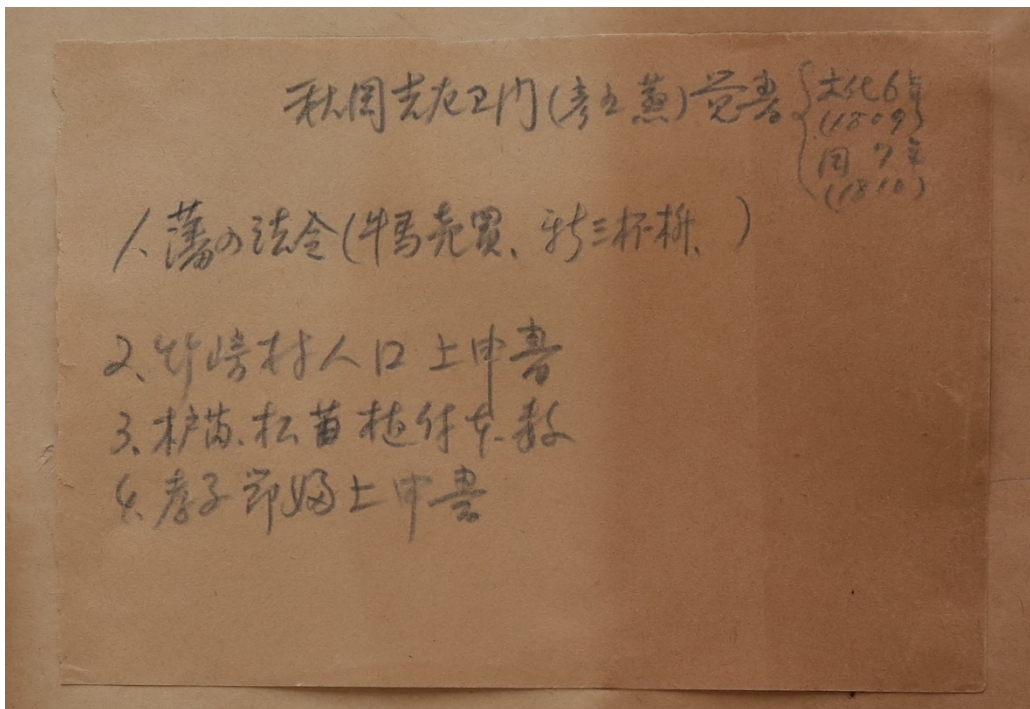 秋岡吉左卫门(彦五蒸)覚書
文化6年
(1809)
同7年
(1810)
1、藩の法令(牛馬売買、新三杯桝、)
2、竹崎村人口上申書
3、杉苗、松苗植付本数
4、孝子節婦上申書